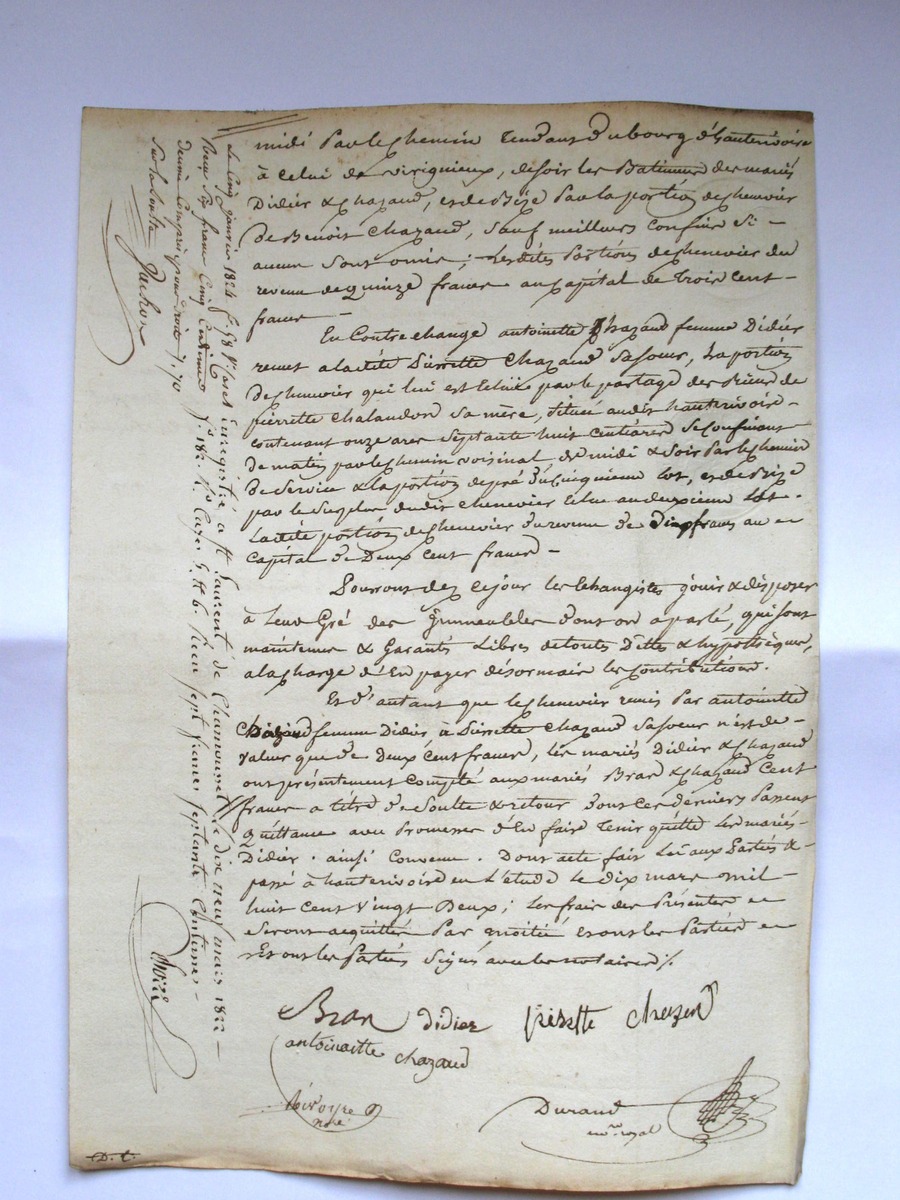 midi par le chemin tendant du bourg d'hauterivoire
à celui de virignieux, de soir les Batiments des mariés
Didier & chazaud, et de Bize par la portion de chenevier
de Benoit Chazaud, sauf meilleurs confins si
aucun sont omis; lesdites portions de chenevier du
revenu de quinze francs au capital de trois cent
francs
En Contrechange antoinette Chazaud femme Didier
remet a ladite Pierrette Chazaud sa sœur, la portion
de chenevier qui lui est échue par le partage des biens de
pierrette chalandon sa mère, située audit hauterivoire
contenant onze ares septante huit centiares se confinant
de matin par le chemin voisinal de midi & soir par le chemin
de service & la portion de pré du cinquieme lot, et de bize
par le surplus dudit chenevier échue au deuxieme lot.
Ladite portion de chenevier du revenu de dix francs au
capital de Deux cent francs
Pourront dez ce jour les échangistes jouir & disposer
à leur Gré des immeubles dont on a parlé, qui sont
maintenus & Garantis Libres de touts Dettes & hypothèques,
a la charge d'En payer désormais les Contributions.
Et d'autant que le chenevier remis par antoinette
Chazaud femme Didier à Pierrette Chazaud sa sœur n'est de
valeur que de deux cent francs, les mariés Didier & chazaud
ont présentement compté aux mariés Bras & chazaud Cent
francs a titre de soulte & retour dont ces derniers passent
Quittance avec promesse d'En faire tenir quitte les mariés
Didier. ainsi convenu. Dont acte fait Lû aux Parties &
passé à hauterivoire en l'étude le dix mars mil
huit cent vingt deux; les frais des présentes
seront acquittés par moitié entre les Parties
et ont les parties signé avec les notaires ./.
Bras didier pierette chazaud
antoinaitte chazaud
Durand
no.re royal
Le Cinq janvier 1824
Reçu
Cinq Centimes
demi compris pour droit
sur la soulte
Enregistré a St Laurent de Chamousset le dix neuf mars 1822
reçu sept francs septante Centimes
D. C.